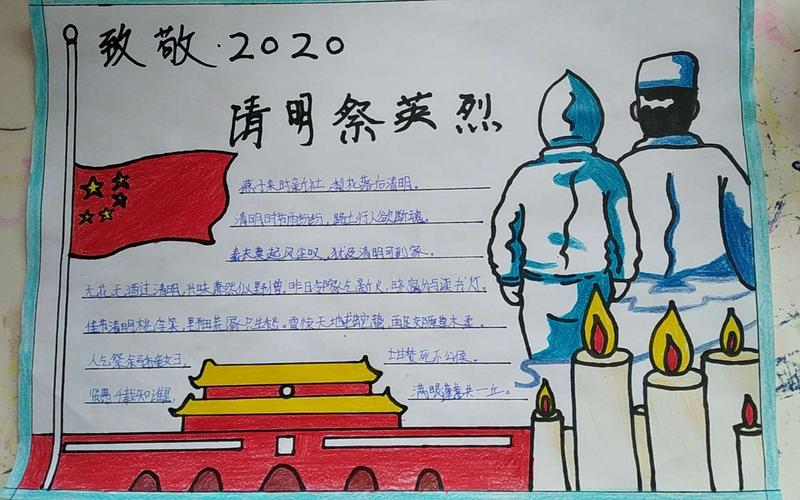 致敬·2020
清明祭英烈
燕子来时新社,梨花落后清明。
清明时节雨纷纷,路上行人欲断魂。
莫起风尘叹,犹是清明可到家。
无花无酒过清明,兴味萧然似野僧。昨日邻家乞新火,晓窗分与读书灯。
佳节清明桃李笑,野田荒冢只生愁。雷惊天地龙蛇蛰,雨足郊原草木柔。
人乞祭余骄妾妇, 士甘焚死不公侯。
贤愚千载知谁是, 满眼蓬蒿共一丘。